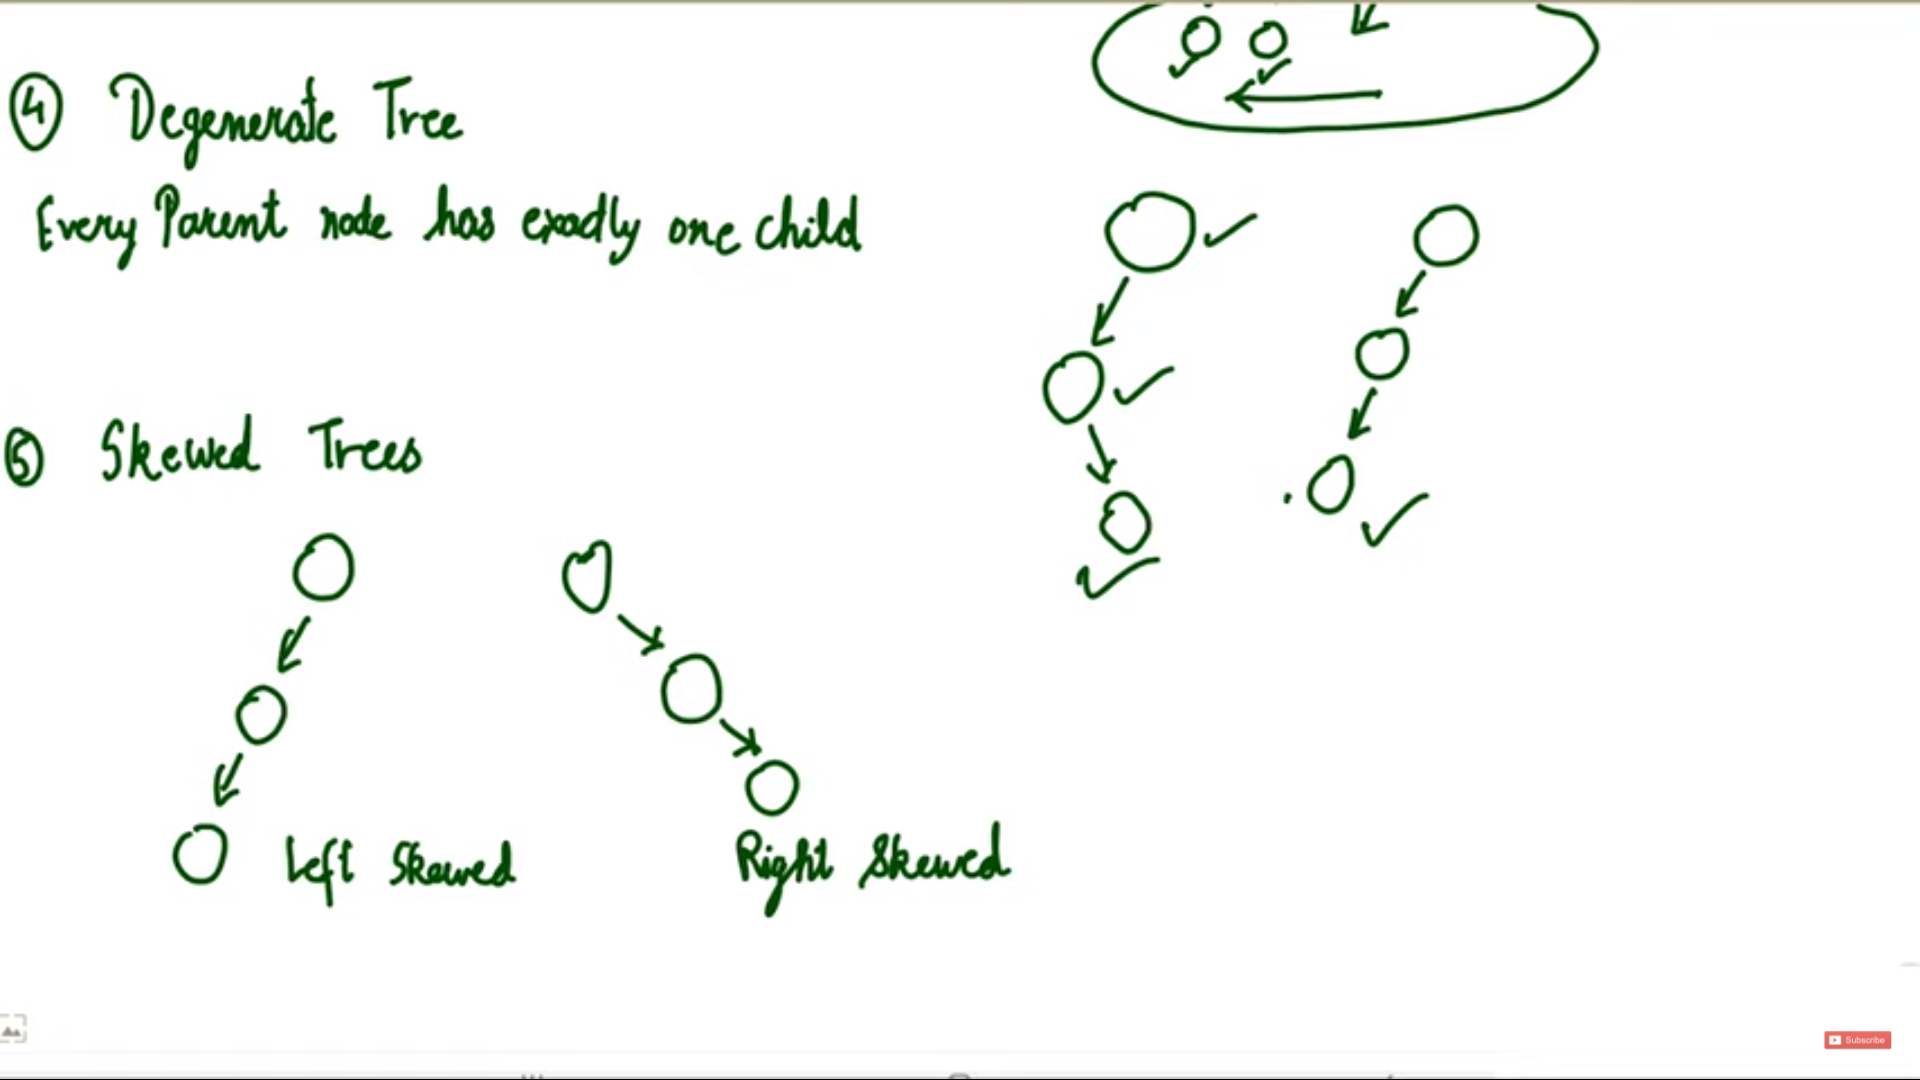 ④ Degenerate Tree
Every Parent node has exactly one child
⑤ Skewed Trees
Left Skewed
Right Skewed
Subscribe